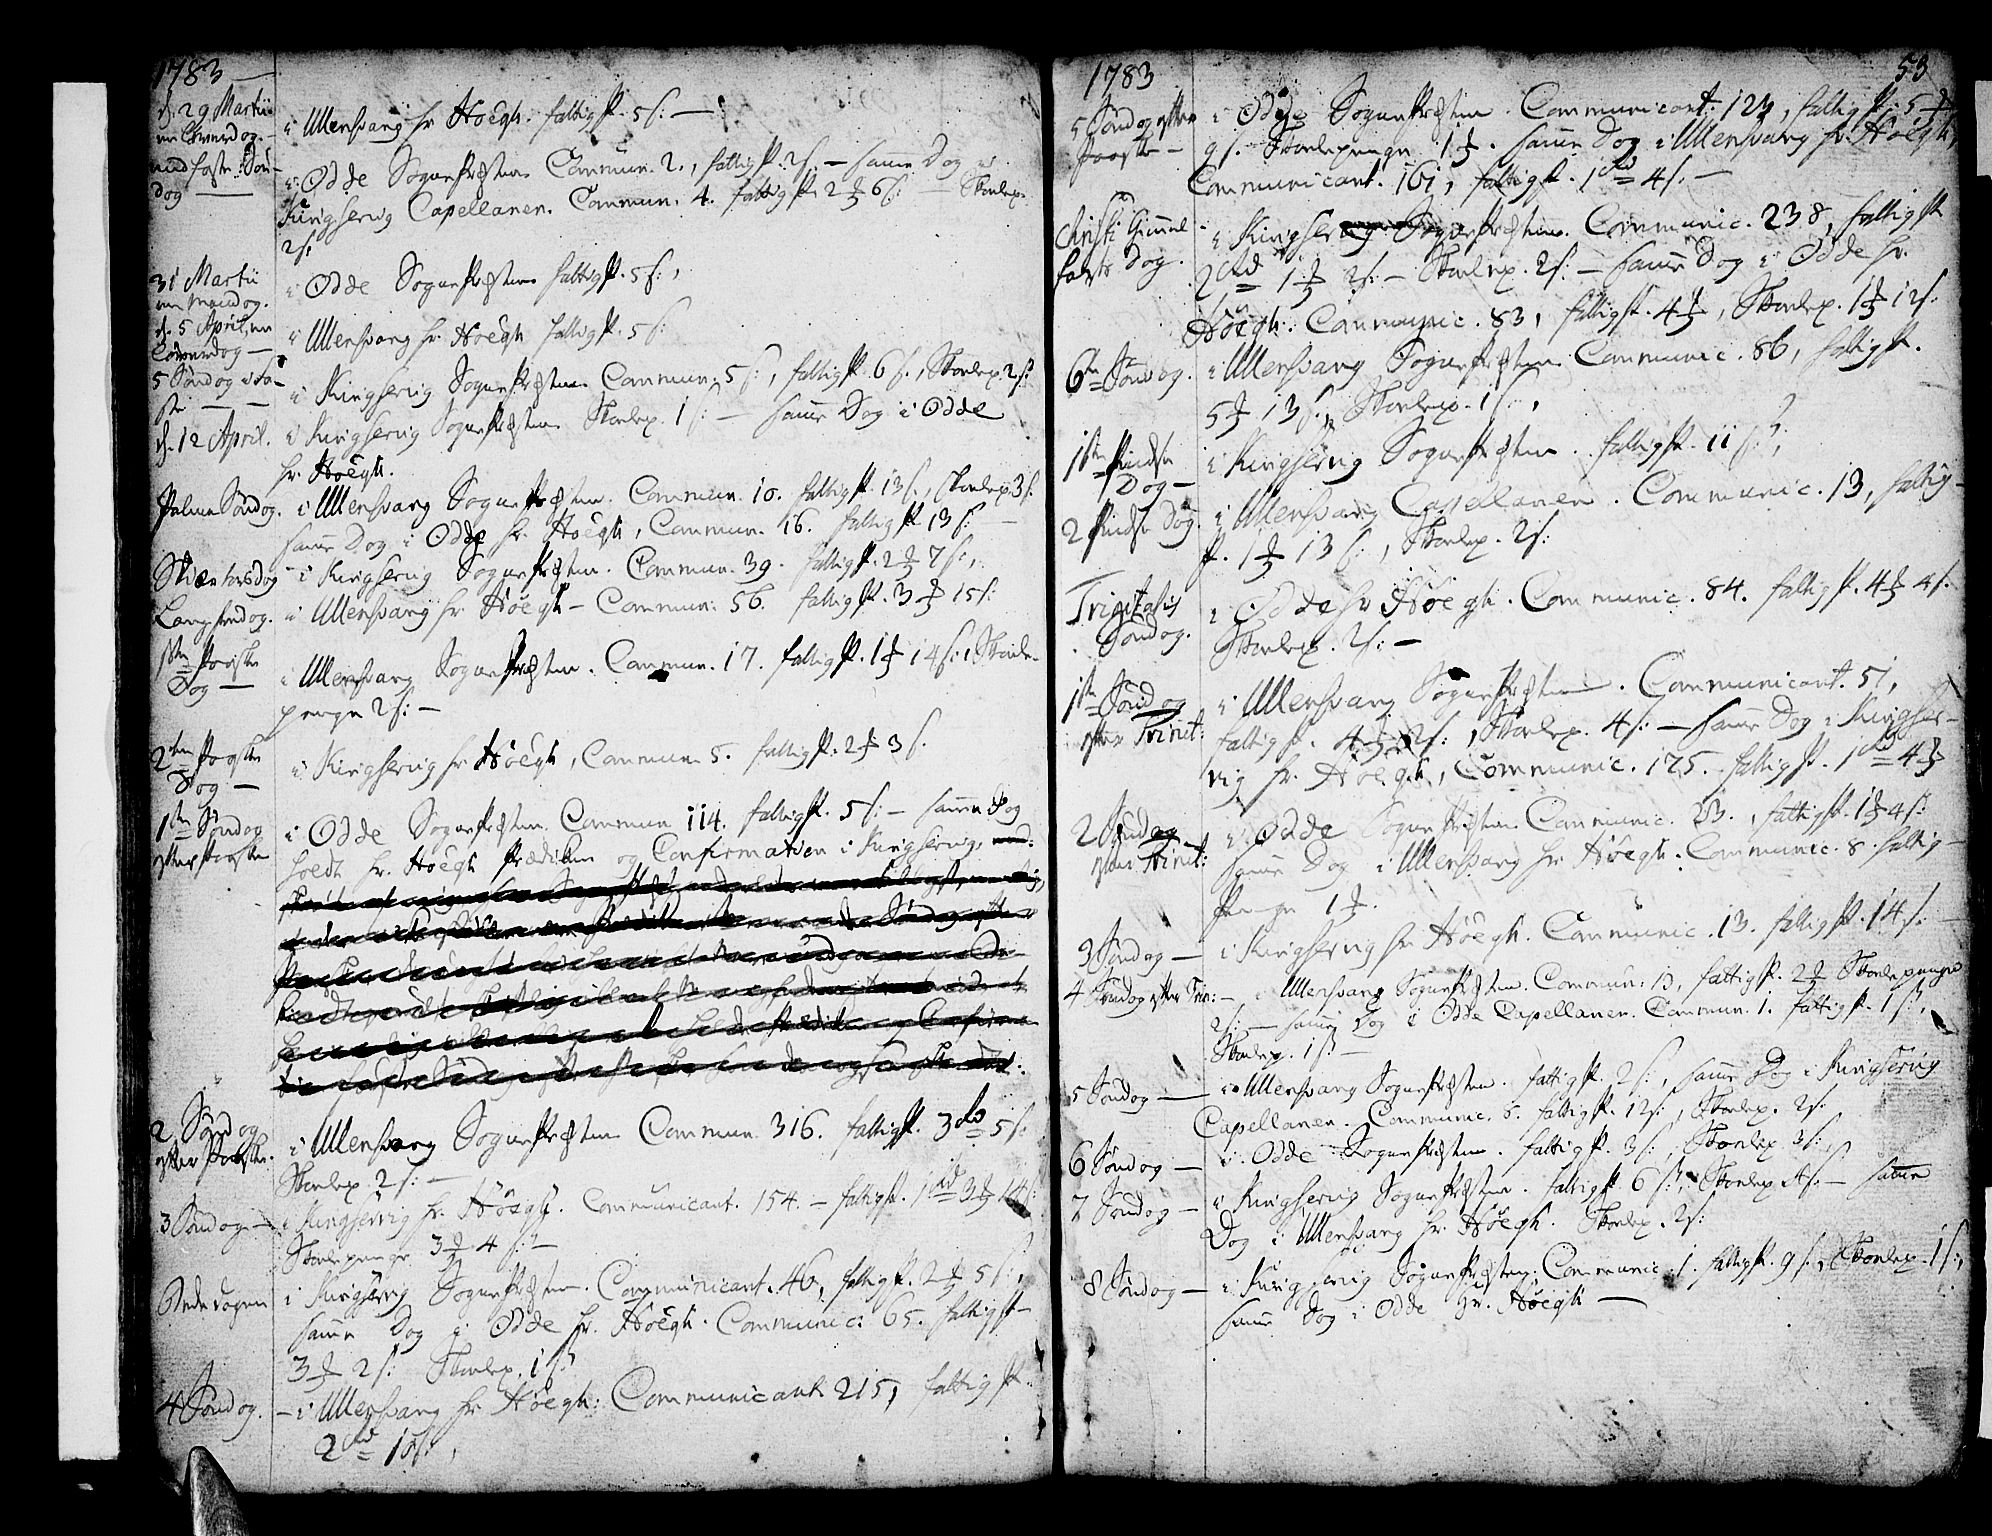 1783
d. 29 Martii
i Ullensvang hr. Höegh. fattigp. 5 s: —
en Löverdag.
mid faste Søn-
dag
i Odde Sognepresten Commun. 2., fattigp. 2 s: — samme Dag i
Kingservig Capellanen. Commun. 4. fattigp. 2 6 s: — Skolep.
2 s:
31 Martii
en Mandag.
i Odde Sognepresten fattigp. 5 s:,
d. 5 April, en
Löverdag —
i Ullensvang hr. Höegh fattigp. 5 s:
5 Søndag i Fa-
ste
i Kingservig Sognepresten Commun. 5 , fattigp. 6 s., Skolep. 2 s:
d. 12 April.
i Kingservig Sognepresten Skolep. 1 s: — samme Dag i Odde
hr. Höegh.
Palme Søndag.
i Ullensvang Sognepresten. Commun. 10. fattigp. 13 s., Skolep. 3 s.
samme Dag i Odde hr. Höegh, Commun. 16. fattigp. 13 s: —
Skiærtorsdag
i Kingservig Sognepresten. Commun. 39. fattigp. 2 7 s:,
Langfredag.
i Ullensvang hr. Höegh — Commun: 56. fattigp. 3 15 s:
1ste Paaske
Dag —
i Ullensvang Sognepresten. Commun. 17. fattigp. 1 14 s:, Skole-
penge 2 s: —
2den Paaske
Dag —
i Kingservig hr Höegh, Commun. 5. fattigp. 2 3 s.
1ste Søndag
efter Paaske
i Odde Sognepresten. Commun. 114. fattigp. 5 s: — samme Dag
holdt hr. Höegh Prædiken og Confirmation i Kingservig.
2 Søndag
efter Paaske.
i Ullensvang Sognepresten Commun. 316. fattigp. 3 rd 5 s:
Skolep. 2 s: —
3 Søndag —
i Kingservig hr. Höegh. Communicant. 154. — fattigp. 1 rd 3 14 s:
Skolepenge 3 4 s: —
Bededagen
i Kingservig Sognepresten. Communicant. 46, fattigp. 2 5 s:,
samme Dag i Odde hr. Höegh. Communic: 65. fattigp —
3 2 s: Skolep. 1 s:
4 Søndag.
— i Ullensvang hr Höegh: Communicant 215, fattigp.
2 rd 10 s:,
1783
53
5 Søndag efter
Paaske —
i Odde Sognepresten. Communicant. 123, fattigp. 5
9 s. Skolepenge 1 . samme Dag i Ullensvang hr. Höegh,
Communicant. 161, fattigp. 1 rd 4 s: —
Christi Himmel
farts Dag.
i Kingservig Sognepresten. Communic. 238, fattigp
2 rd 1 2 s: — Skolep. 2 s: — samme Dag i Odde hr.
Höegh. Communic. 83, fattigp. 4 , Skolep. 1 12 s:
6te Søndag.
i Ullensvang Sognepresten Communic. 86, fattigp.
5 13 s:, Skolep. 1 s:,
1ste Pindse
Dag —
i Kingservig Sognepresten. fattigp. 11 s:,
2 Pindse Dag.
i Ullensvang Capellanen. Communic. 13, fattig-
p. 1 13 s:, Skolep. 2 s:
Trinitatis
Søndag.
i Odde hr Höegh. Communic. 84. fattigp. 4 4 s.
Skolep. 2 s: —
1ste Søndag
efter Trinit:
i Ullensvang Sognepresten. Communicant. 51,
fattigp. 4 2 s:, Skolep. 4 s: — samme Dag i Kingser-
vig hr. Höegh, Communic. 175. fattigp. 1 rd 4
2 Søndag
efter Trinit:
i Odde Sognepresten Communic. 23., fattigp. 1 4 s:
samme Dag i Ullensvang hr. Höegh. Communic. 8. fattig —
penge 1 .
3 Søndag —
i Kingservig hr Höegh. Communic. 13. fattigp. 14 s: —
4 Søndag efter Trin: —
i Ullensvang Sognepresten. Commun: 13, fattigp. 2 Skolepenge
2 s: — samme Dag i Odde Capellanen. Commun. 1. fattigp. 1 s:,
Skolep. 1 s: —
5 Søndag —
i Ullensvang Sognepresten. fattigp. 2 s:, samme Dag i Kingservig
Capellanen. Communic. 6. fattigp. 12 s:, Skolep. 2 s:
6 Søndag —
i Odde Sognepresten. fattigp. 3 s:, Skolep 3 s:
7 Søndag —
i Kingservig Sognepresten. fattigp 6 s:, Skolep. 4 s: — samme
Dag i Ullensvang hr. Höegh. Skolep. 2 s:
8 Søndag —
i Kingservig Sognepresten. Communic. 1. fattigp. 9 s:, Skolep. 1 s:,
samme Dag i Odde hr. Höegh —